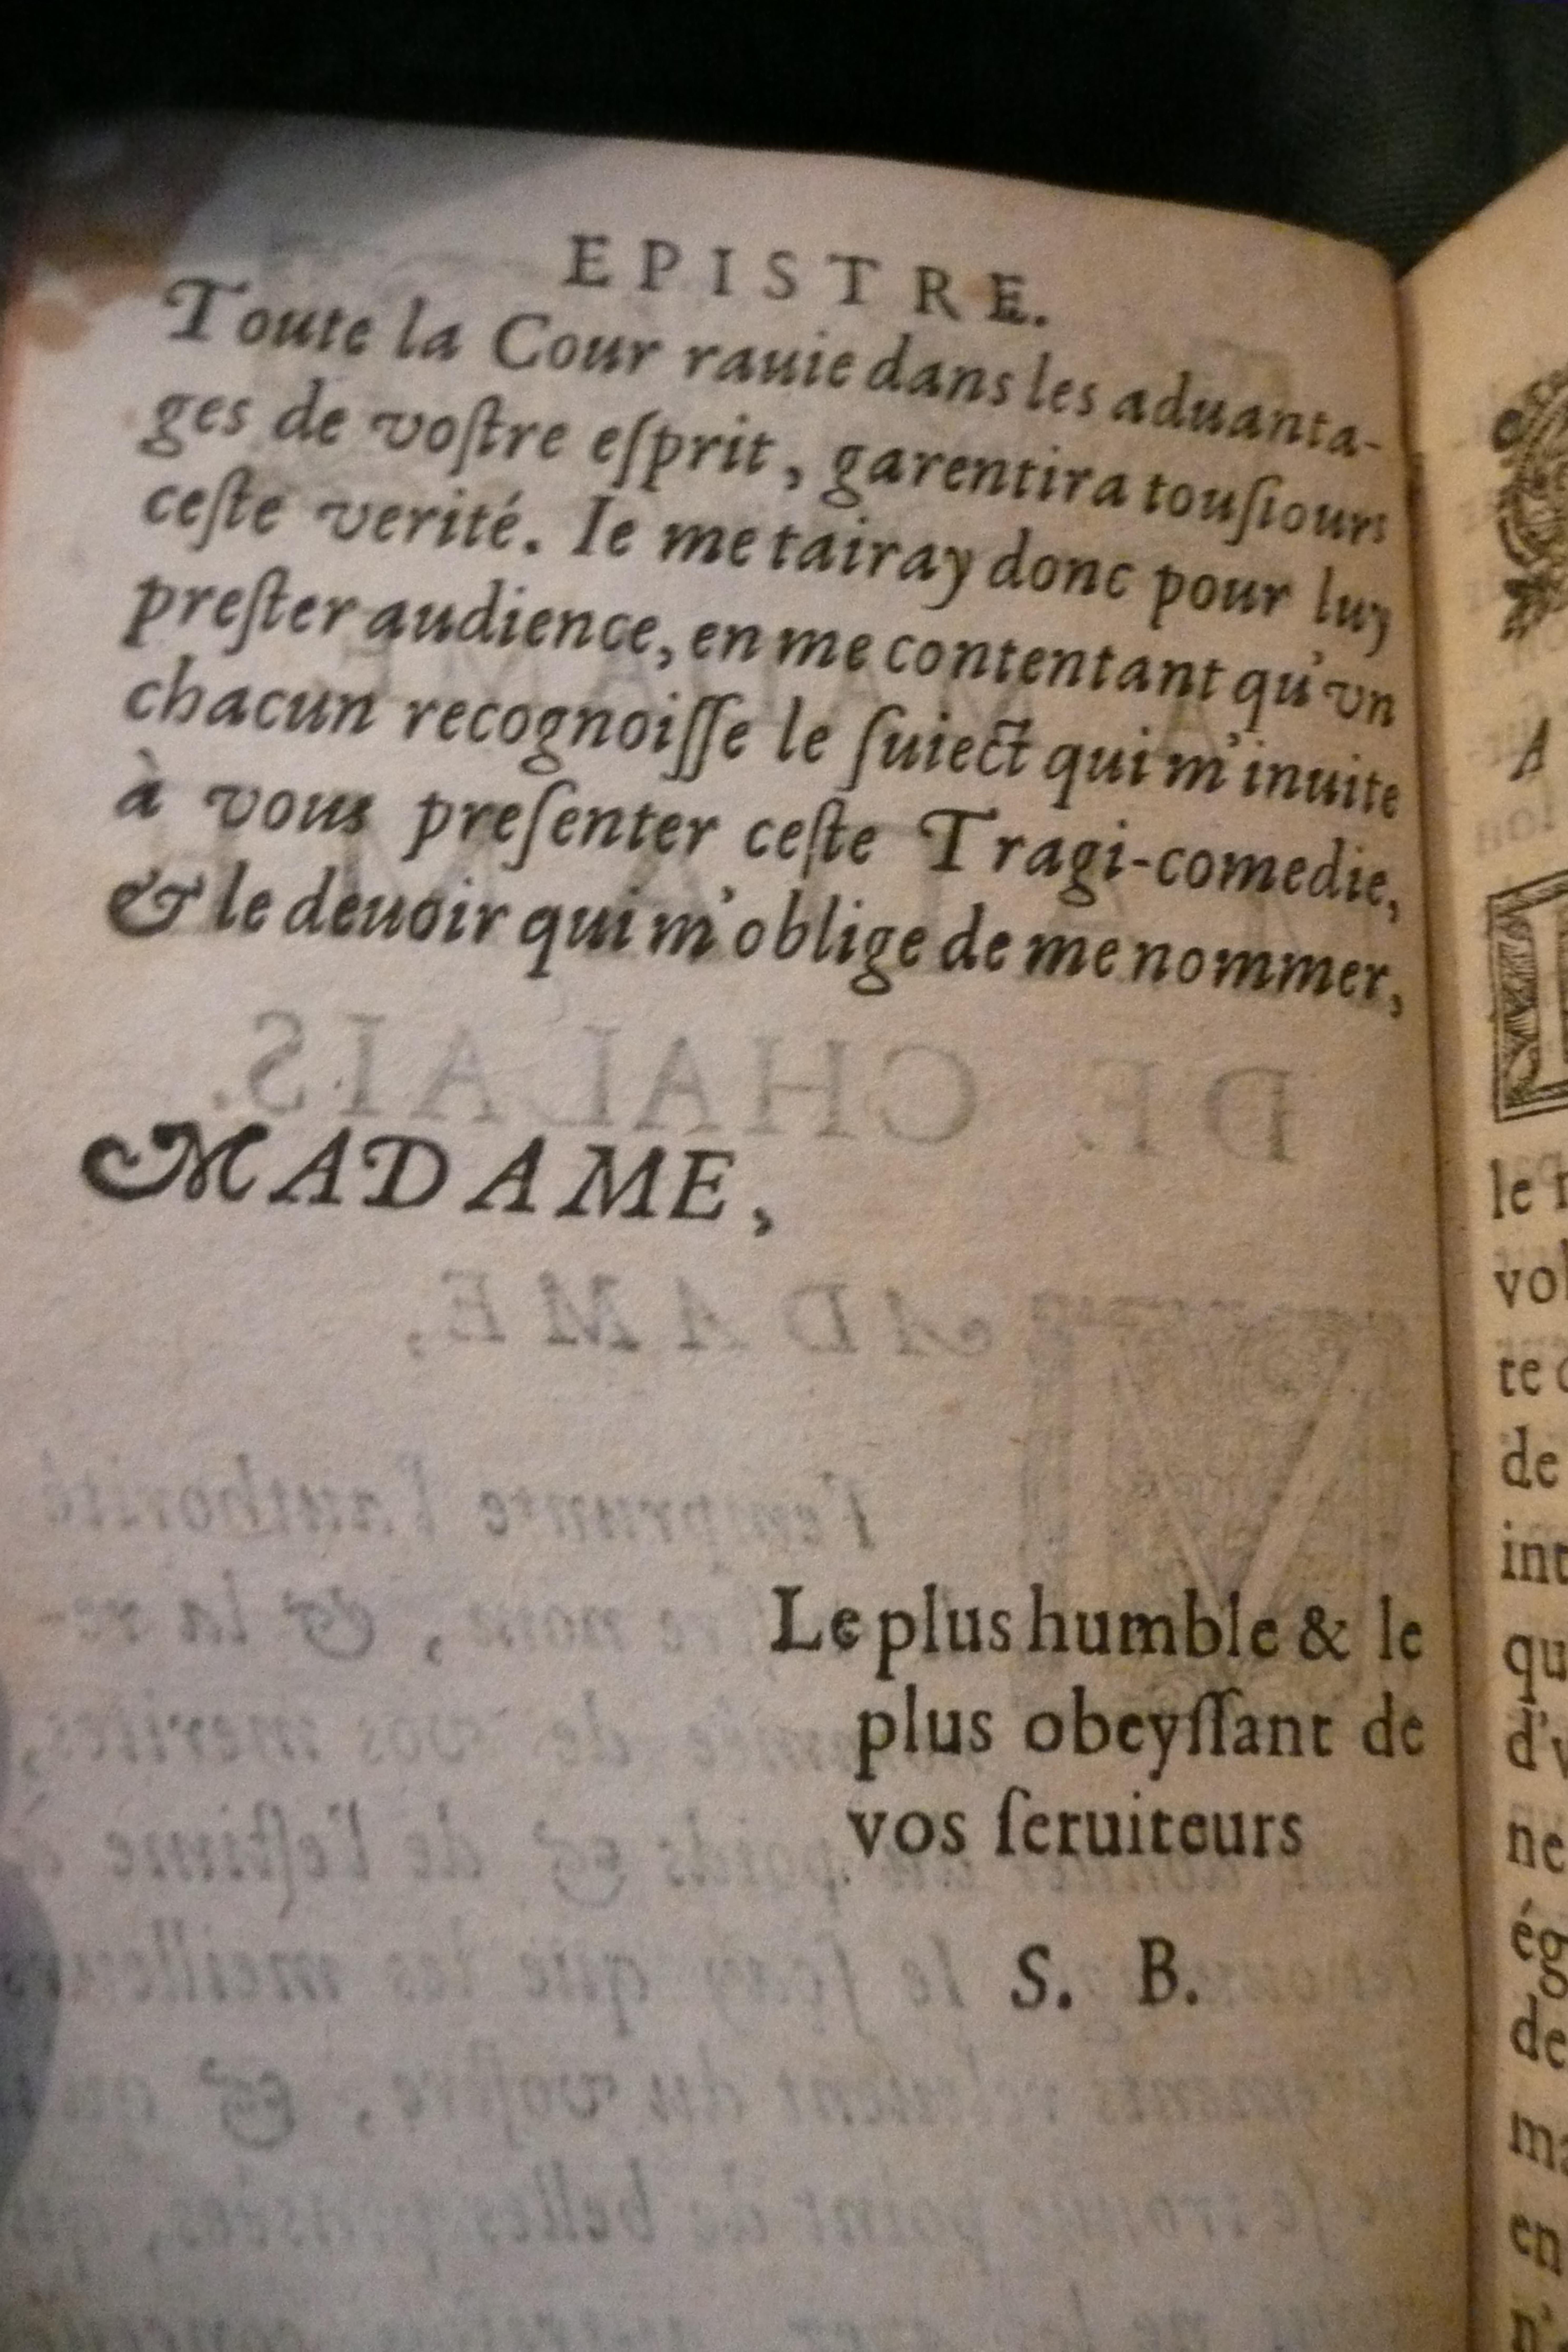 EPISTRE.
Toute la Cour rauie dans les aduanta-
ges de voſtre eſprit, garentira touſiours
ceſte verité. Ie me tairay donc pour luy
preſter audience, en me contentant qu'vn
chacun recognoiſſe le ſuiect qui m'inuite
à vous preſenter ceſte Tragi-comedie,
& le deuoir qui m'oblige de me nommer,
MADAME,
Le plus humble & le
plus obeyſſant de
vos ſeruiteurs
S. B.
A
le
vol
te
de
int
qu
d'v
ne
ég
de
ma
en